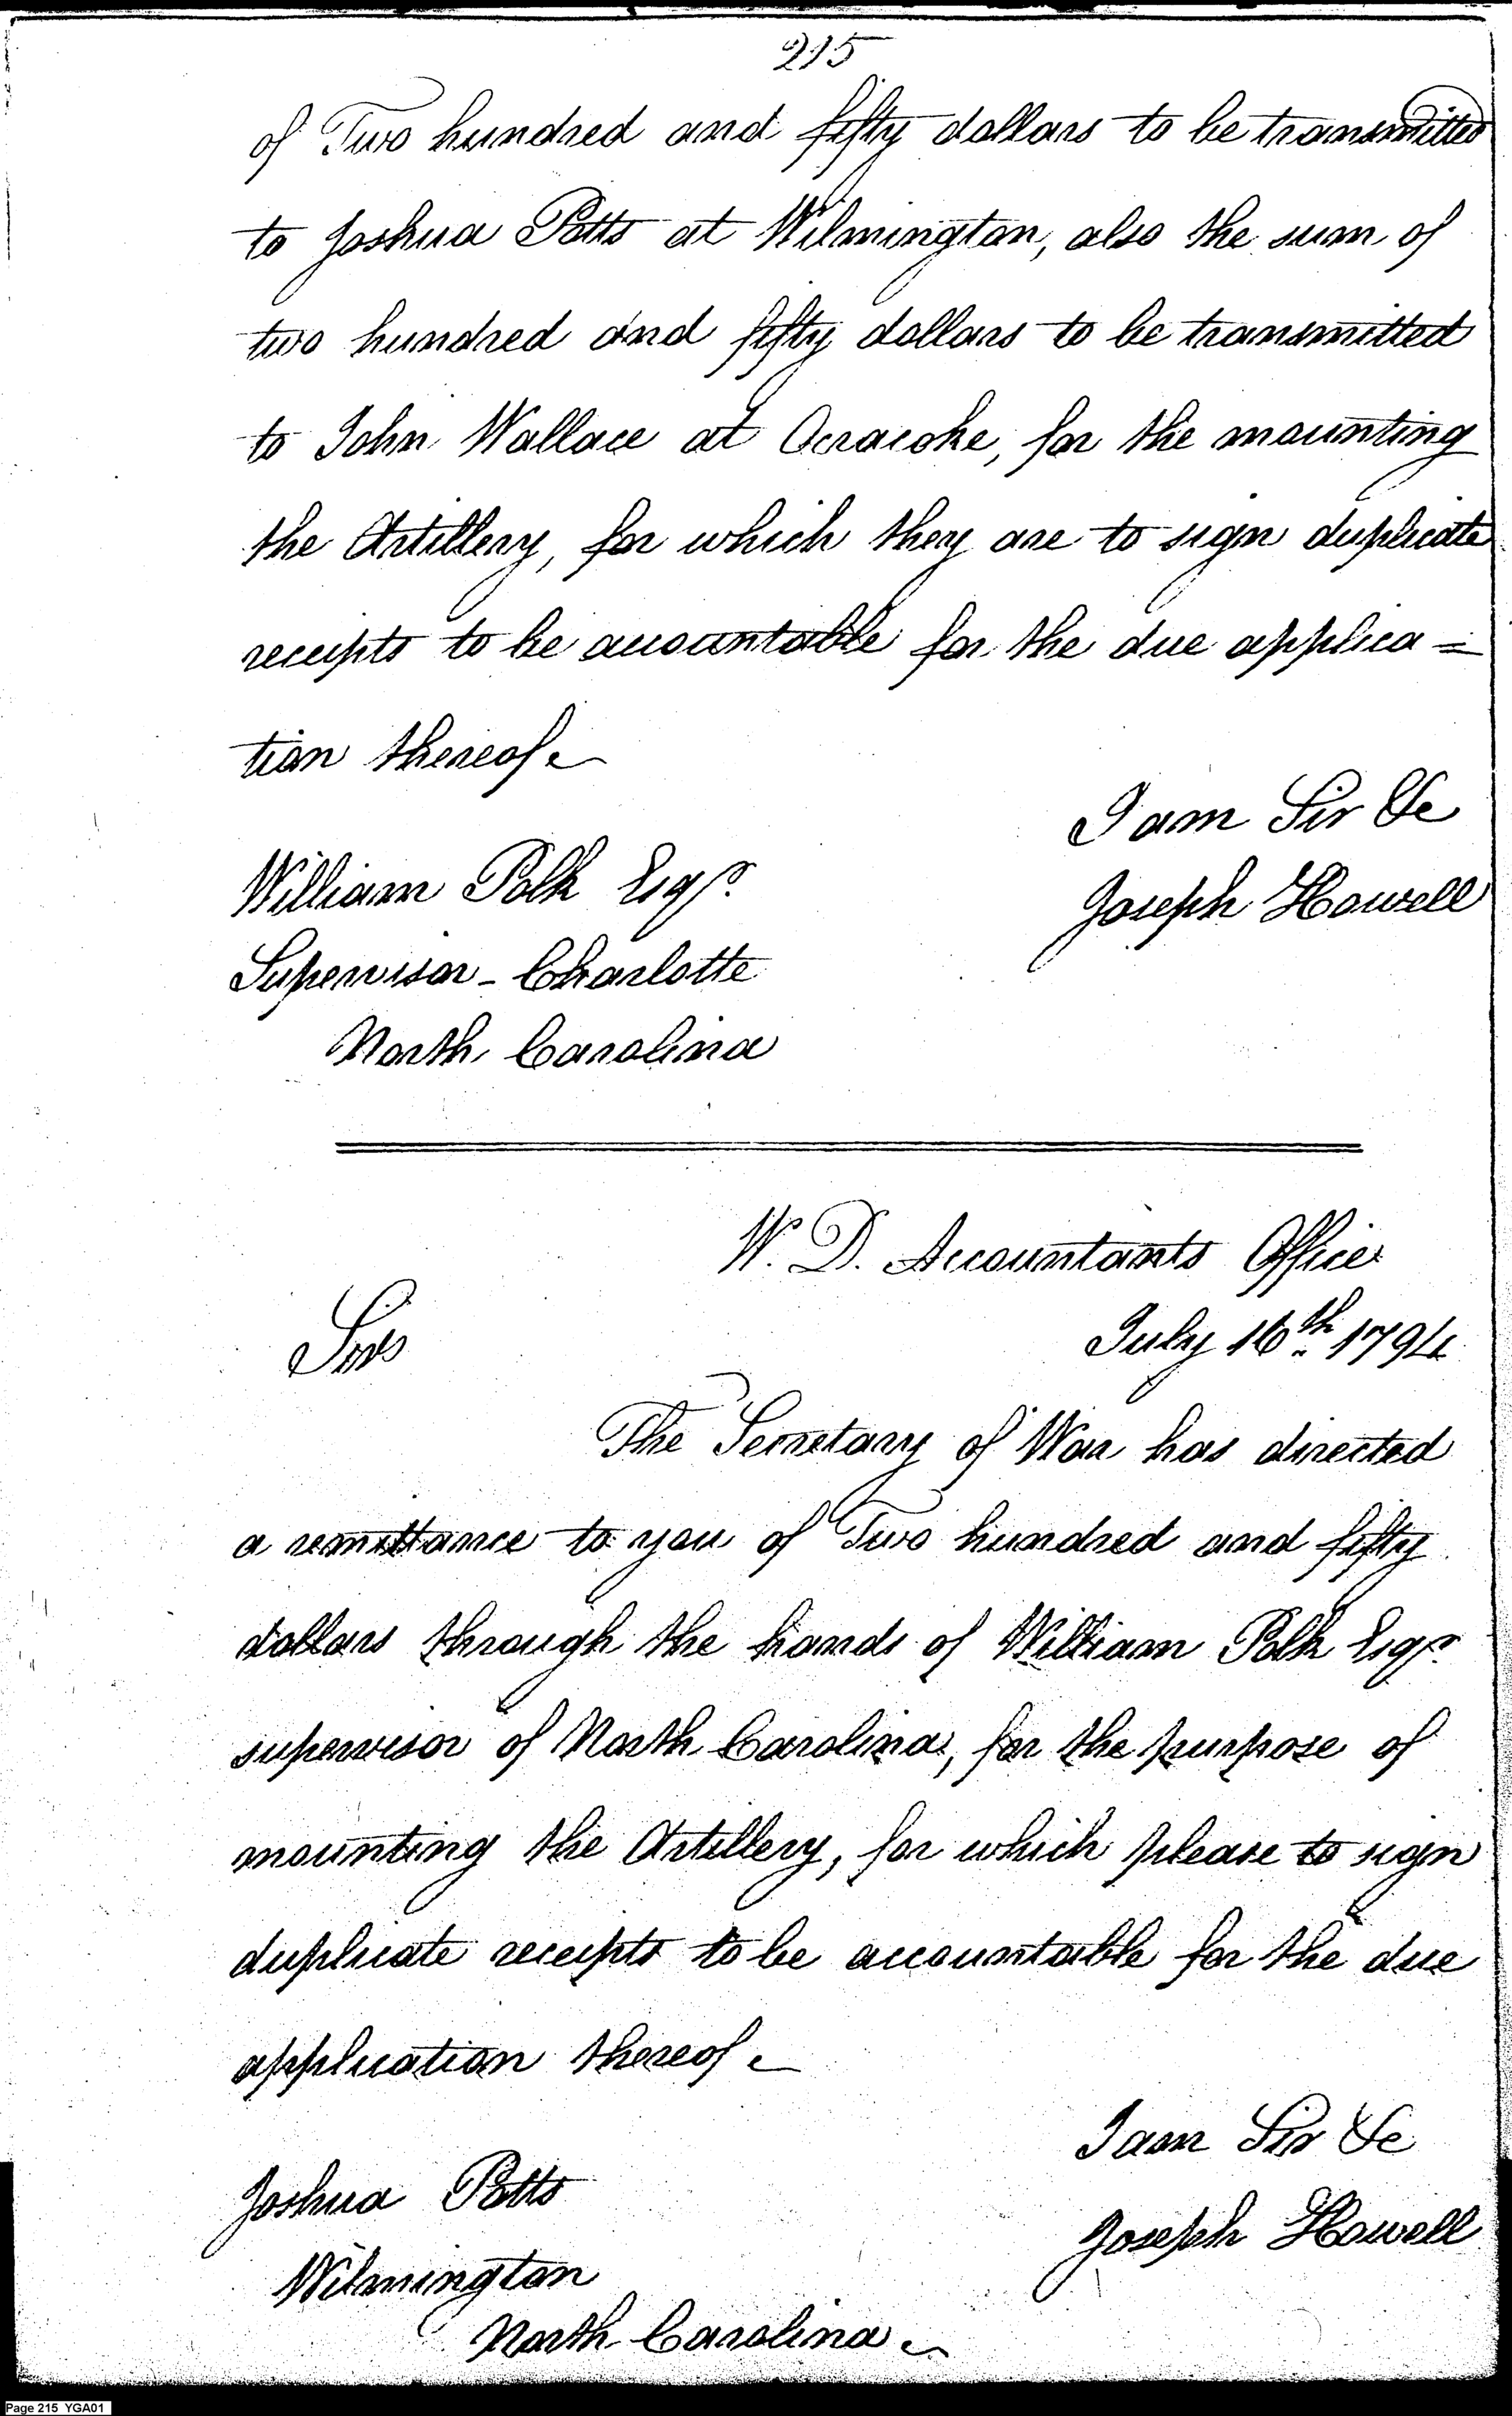 215
of Two hundred and fifty dollars to be transmitted
to Joshua Potts at Wilmington, also the sum of
two hundred and fifty dollars to be transmitted
to John Wallace at Ocracoke, for the mounting
the Artillery, for which they are to sign duplicate
receipts to be accountable for the due applica=
tion thereof
I am Sir &c
Joseph Howell
William Polk Esqr.
Supervisor - Charlotte
North Carolina
W. D. Accountants Office
July 16th 1794
Sir
The Secretary of War has directed
a remittance to you of Two hundred and fifty
dollars through the hands of William Polk Esqr.
supervisor of North Carolina, for the purpose of
mounting the Artillery, for which please to sign
duplicate receipts to be accountable for the due
application thereof
I am Sir &c
Joseph Howell
Joshua Potts
Wilmington
North Carolina
Page 215 YGA01